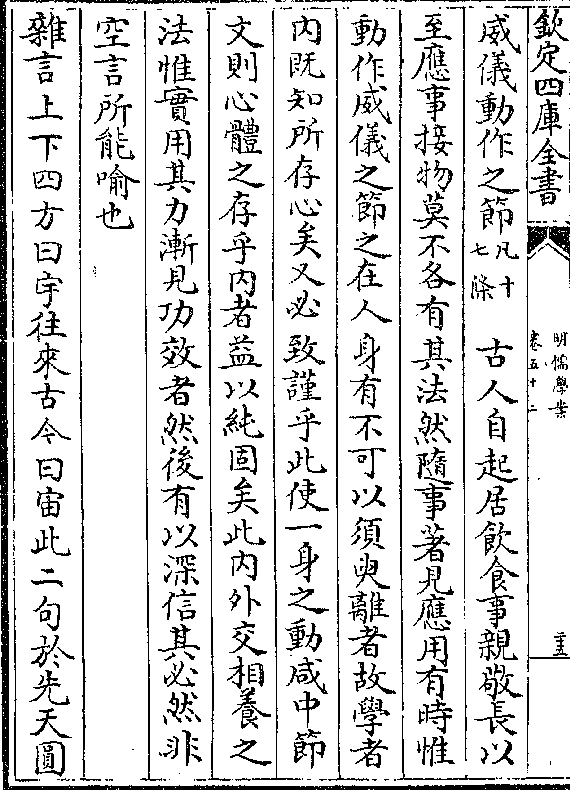 欽定四庫全書
明儒學案
卷五十二
威儀動作之節凡十七條　古人自起居飲食事親敬長以
至應事接物莫不各有其法然隨事著見應用有時惟
動作威儀之節之在人身有不可以須臾離者故學者
内既知所存心矣又必致謹乎此使一身之動咸中節
文則心體之存乎内者益以純固矣此内外交相養之
法惟實用其力漸見功效者然後有以深信其必然非
空言所能喻也
雜言上下四方曰宇往來古今曰宙此二句於先天圓